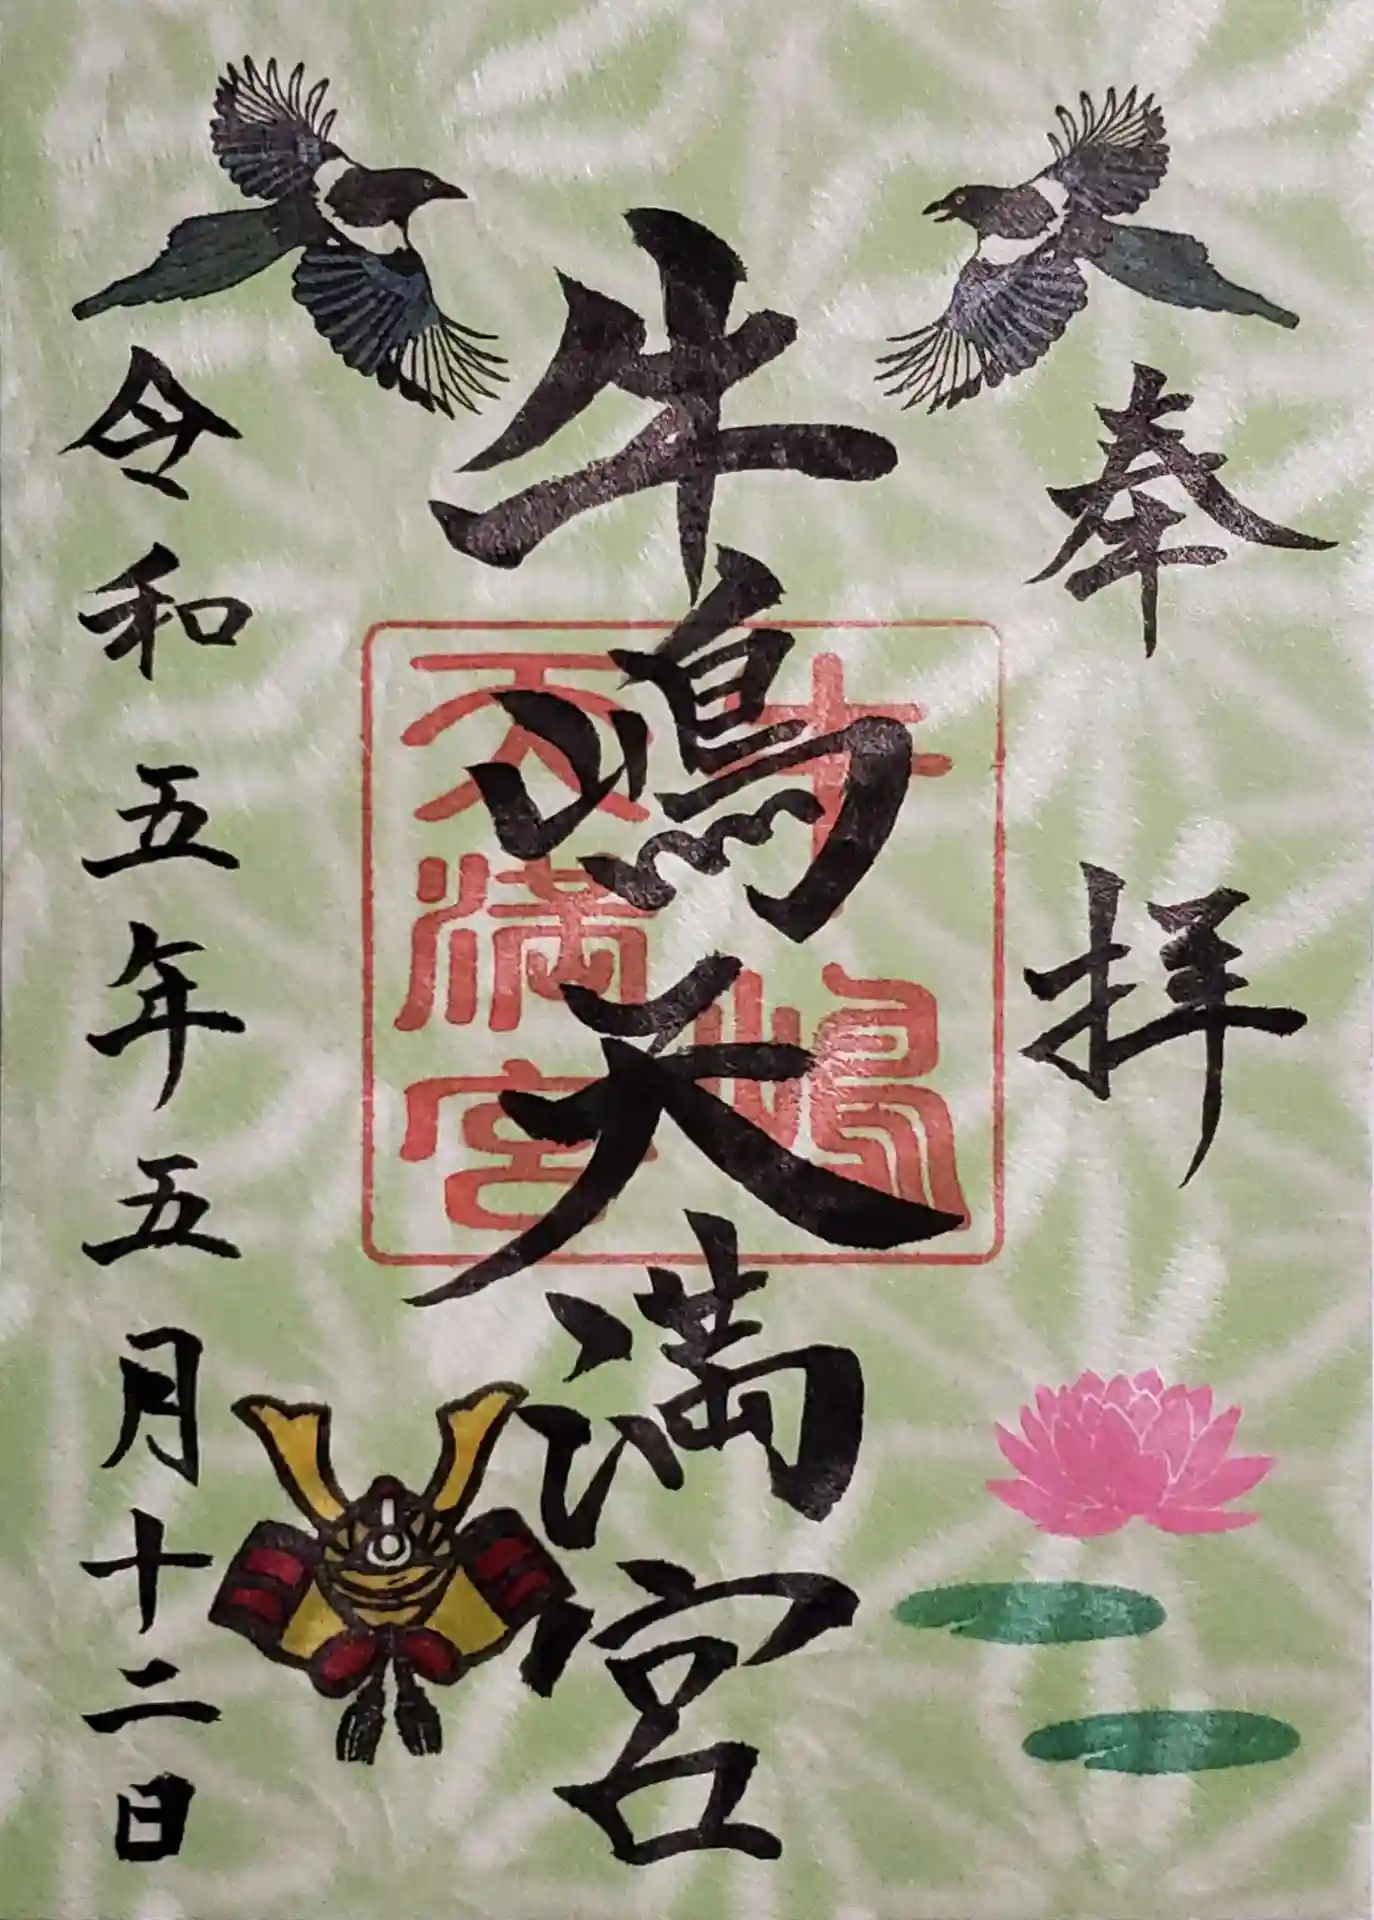 奉拝
牛嶋天満宮
牛嶋
天満宮
令和五年五月十二日